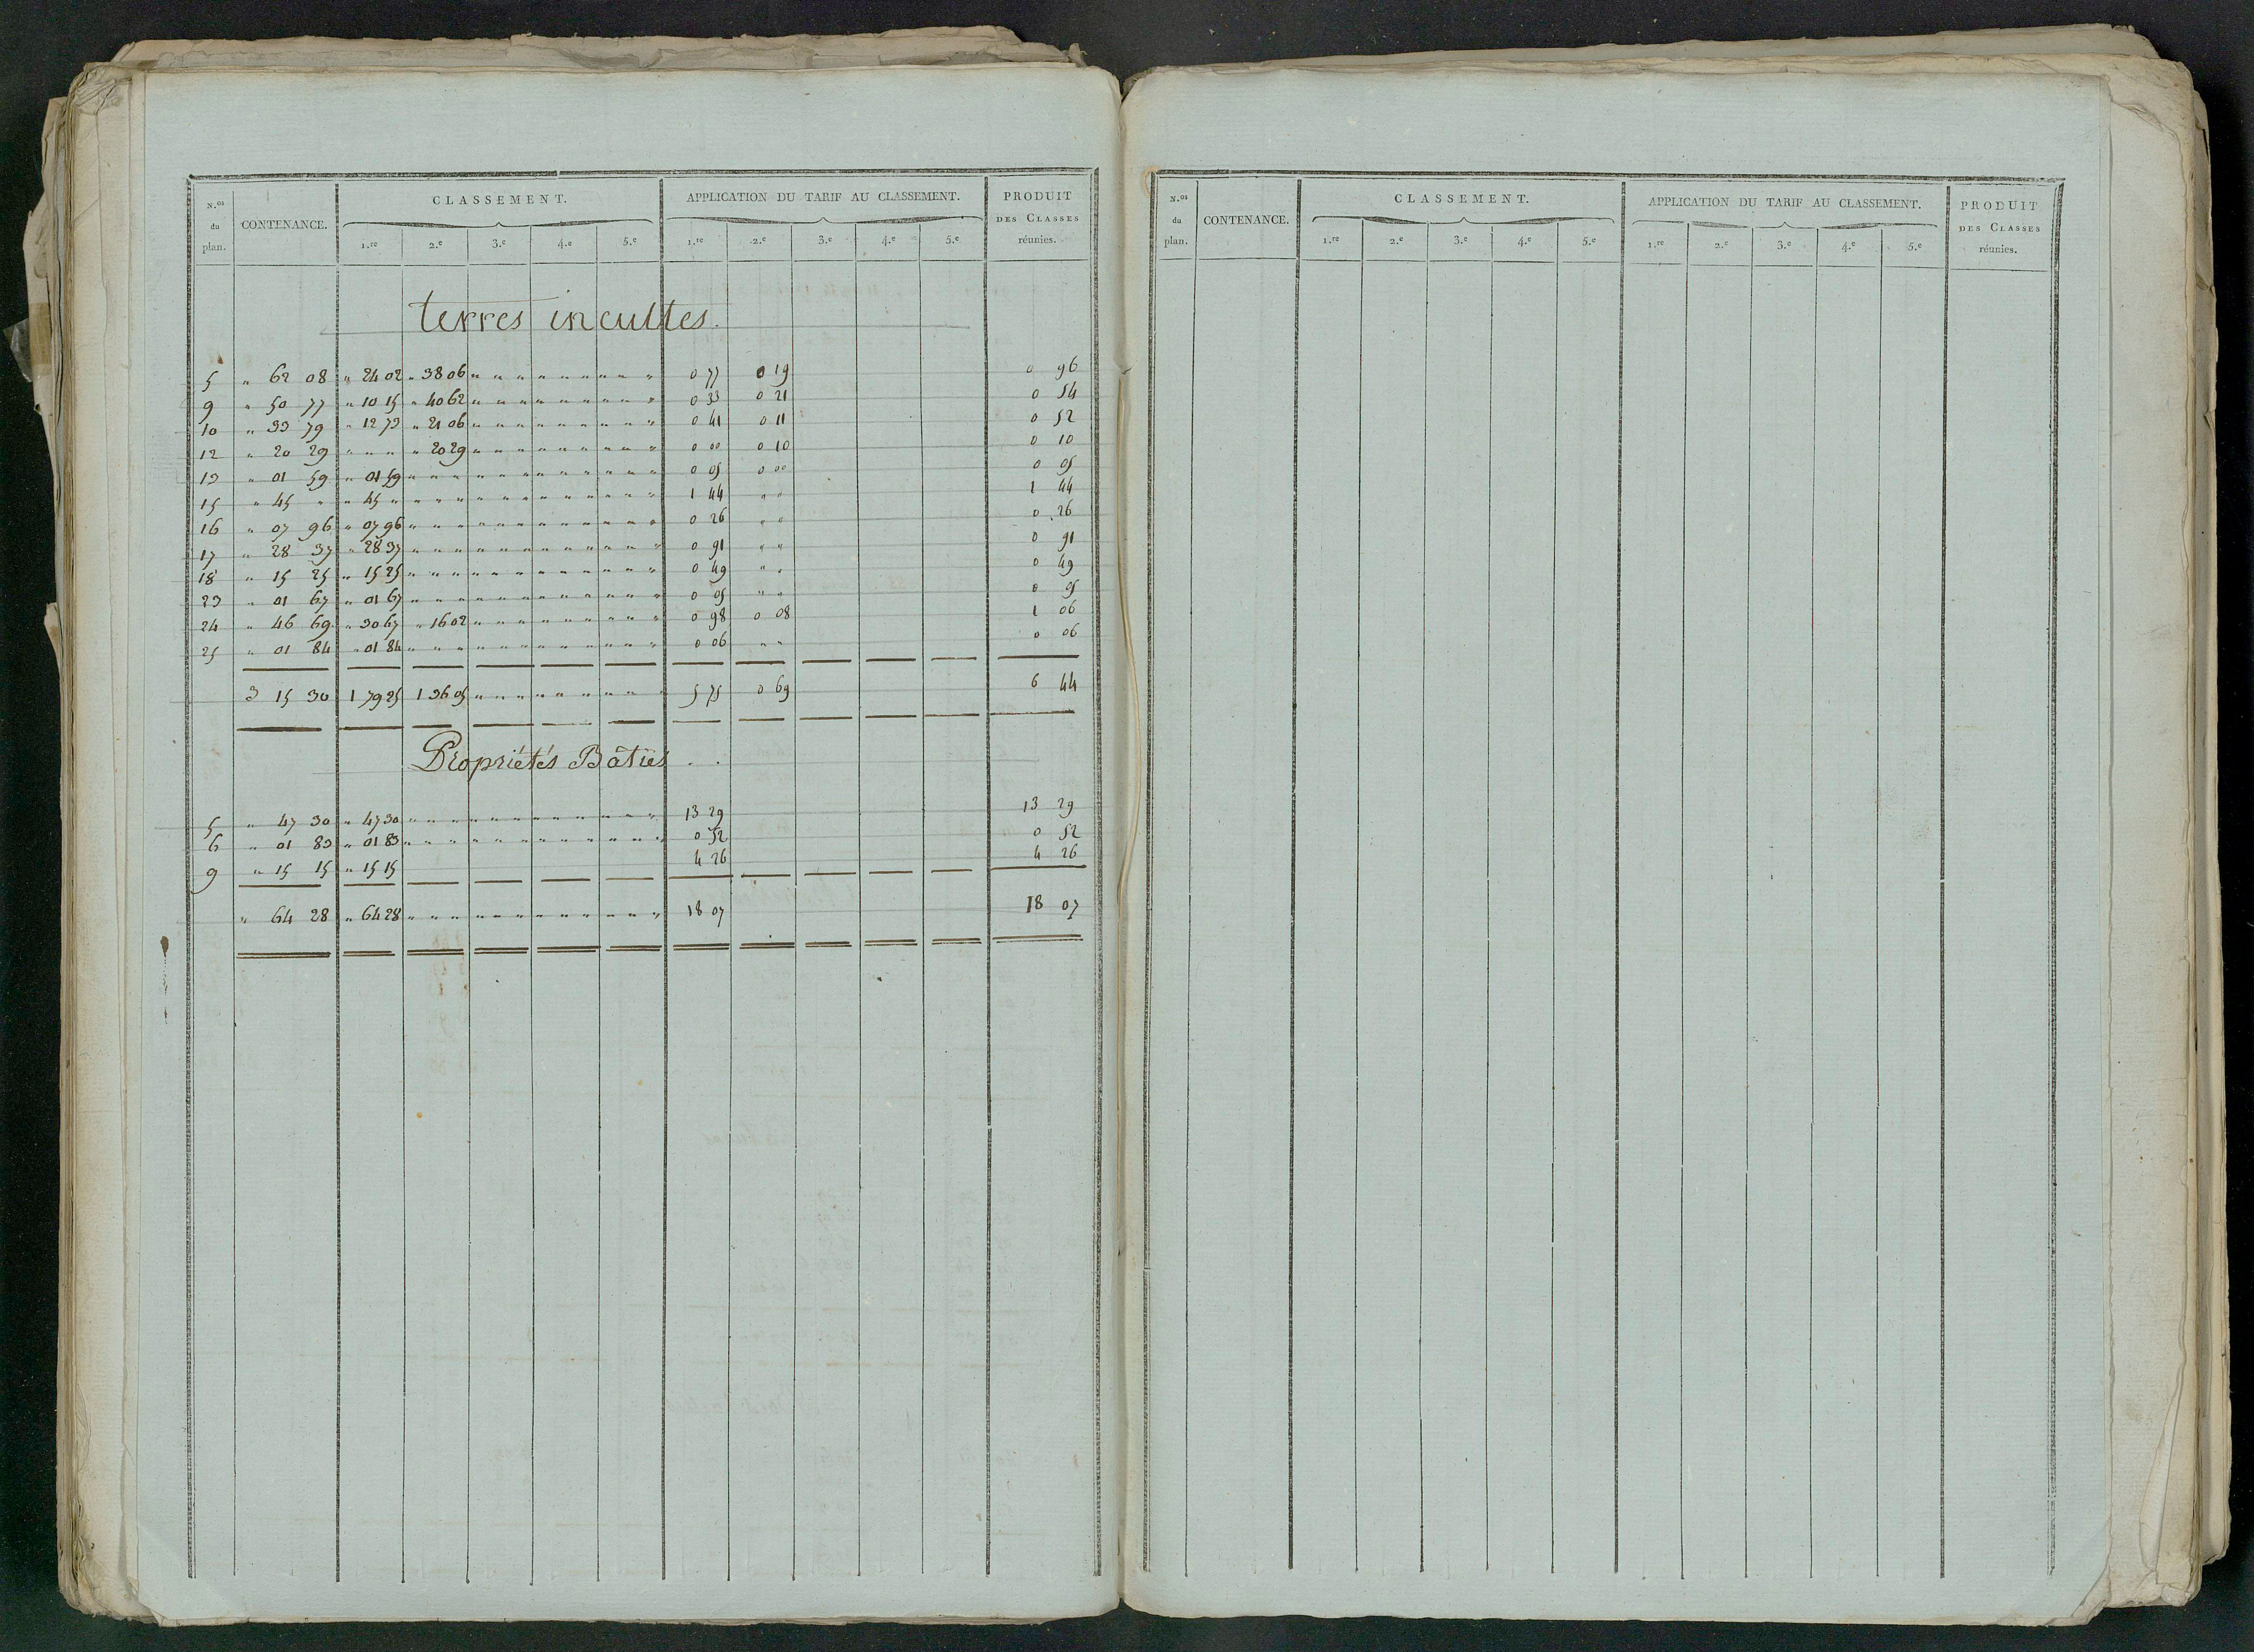 N.os du plan. CONTENANCE. CLASSEMENT. APPLICATION DU TARIF AU CLASSEMENT. PRODUIT DES CLASSES réunies.
1.re 2.e 3.e 4.e 5.e 1.re 2.e 3.e 4.e 5.e
terres incultes.
5 " 62 08 " 24 02 " 38 06 " " " " " " " " " 0 77 0 19 0 96
9 " 50 77 " 10 15 " 40 62 " " " " " " " " " 0 33 0 21 0 54
10 " 33 79 " 12 73 " 21 06 " " " " " " " " " 0 41 0 11 0 52
12 " 20 29 " " " " 20 29 " " " " " " " " " 0 00 0 10 0 10
13 " 01 59 " 01 59 " " " " " " " " " " " " 0 05 0 00 0 05
15 " 45 " " 45 " " " " " " " " " " " " " 1 44 " " 1 44
16 " 07 96 " 07 96 " " " " " " " " " " " " 0 26 " " 0 26
17 " 28 37 " 28 37 " " " " " " " " " " " " 0 91 " " 0 91
18 " 15 25 " 15 25 " " " " " " " " " " " " 0 49 " " 0 49
23 " 01 67 " 01 67 " " " " " " " " " " " " 0 05 " " 0 05
24 " 46 69 " 30 67 " 16 02 " " " " " " " " " 0 98 0 08 1 06
25 " 01 84 " 01 84 " " " " " " " " " " " " 0 06 " " 0 06
3 15 30 1 79 25 1 36 05 " " " " " " " " " 5 75 0 69 6 44
Propriétés Bâties
5 " 47 30 " 47 30 " " " " " " " " " " " " 13 29 13 29
6 " 01 83 " 01 83 " " " " " " " " " " " " 0 52 0 52
9 " 15 15 " 15 15 4 26 4 26
" 64 28 " 64 28 " " " " " " " " " " " " 18 07 18 07
N.os du plan. CONTENANCE. CLASSEMENT. APPLICATION DU TARIF AU CLASSEMENT. PRODUIT DES CLASSES réunies.
1.re 2.e 3.e 4.e 5.e 1.re 2.e 3.e 4.e 5.e